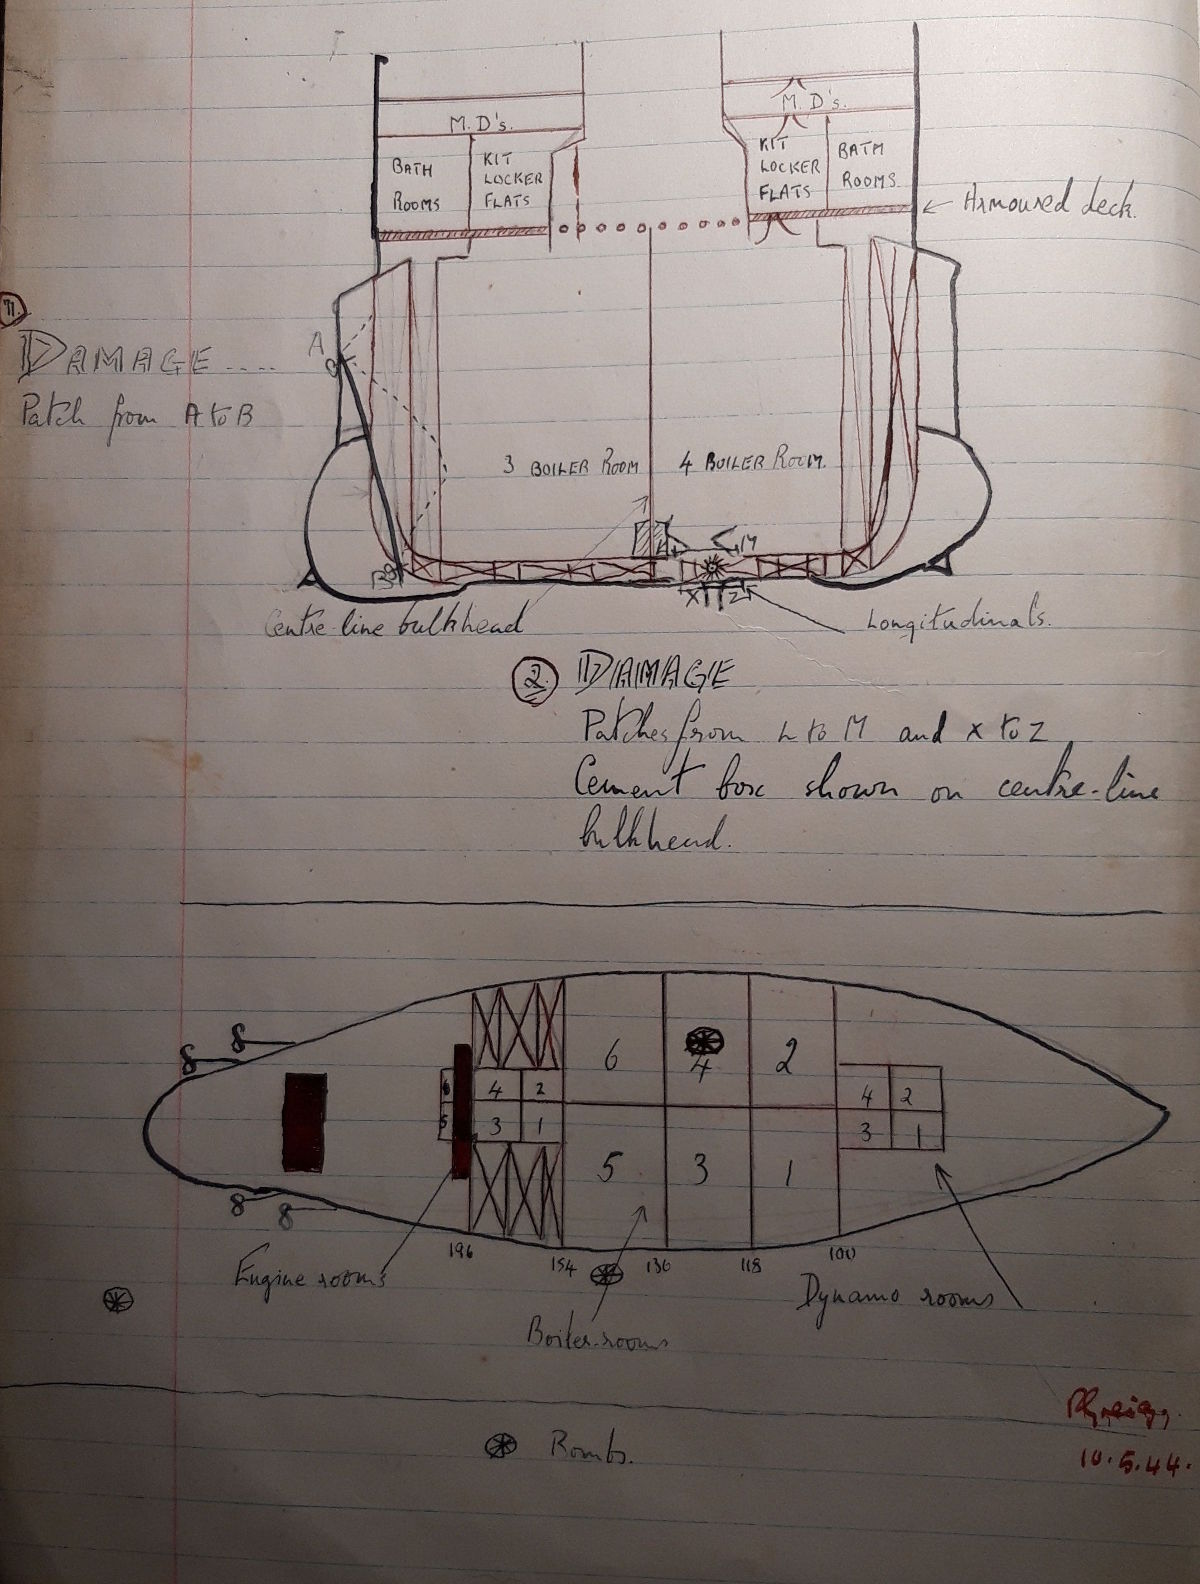 M.D's.
M.D's.
BATH
ROOMS
KIT
LOCKER
FLATS
KIT
LOCKER
FLATS
BATH
ROOMS.
Armoured deck.
A
DAMAGE ....
Patch from A to B
3 BOILER ROOM
4 BOILER ROOM.
L
M
B
X
Z
Centre-line bulkhead
Longitudinals.
2. DAMAGE
Patches from L to M and X to Z
Cement box shown on centre-line
bulkhead.
6 4 2
6 4 2
4 2
5 3 1
3 1
5 3 1
196 154 136 118 100
Engine rooms
Boiler-rooms
Dynamo rooms
Bombs.
10.5.44.